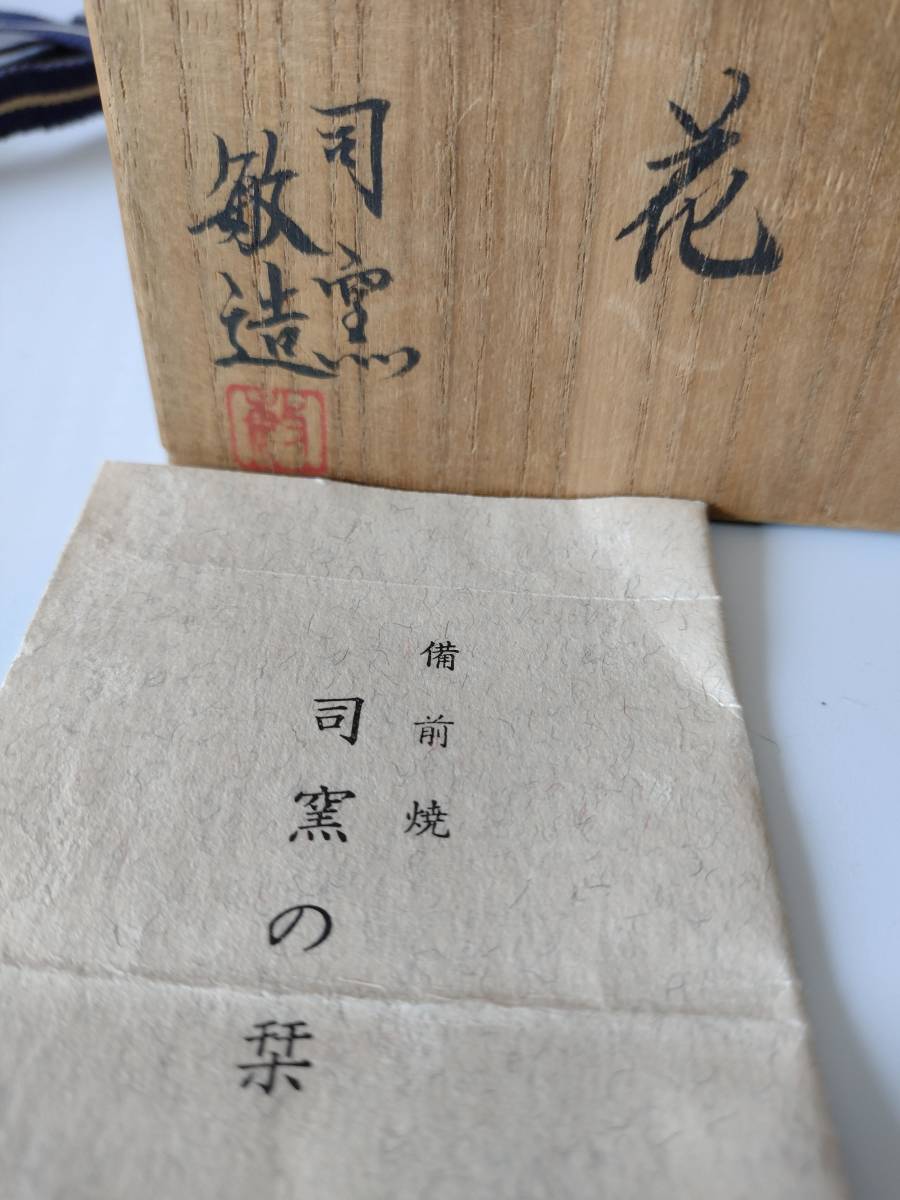 花
司窯
敏造
敏
備前焼
司窯の栞